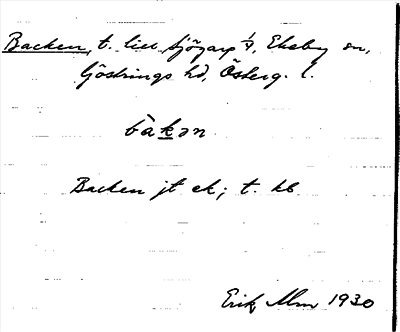 Backen, t. lill Sjögarp 1/4, Ekeby sn,
Göstrings hd, Österg. l.
bàkən
Backen jt ek; t. kb
Erik Alm 1930